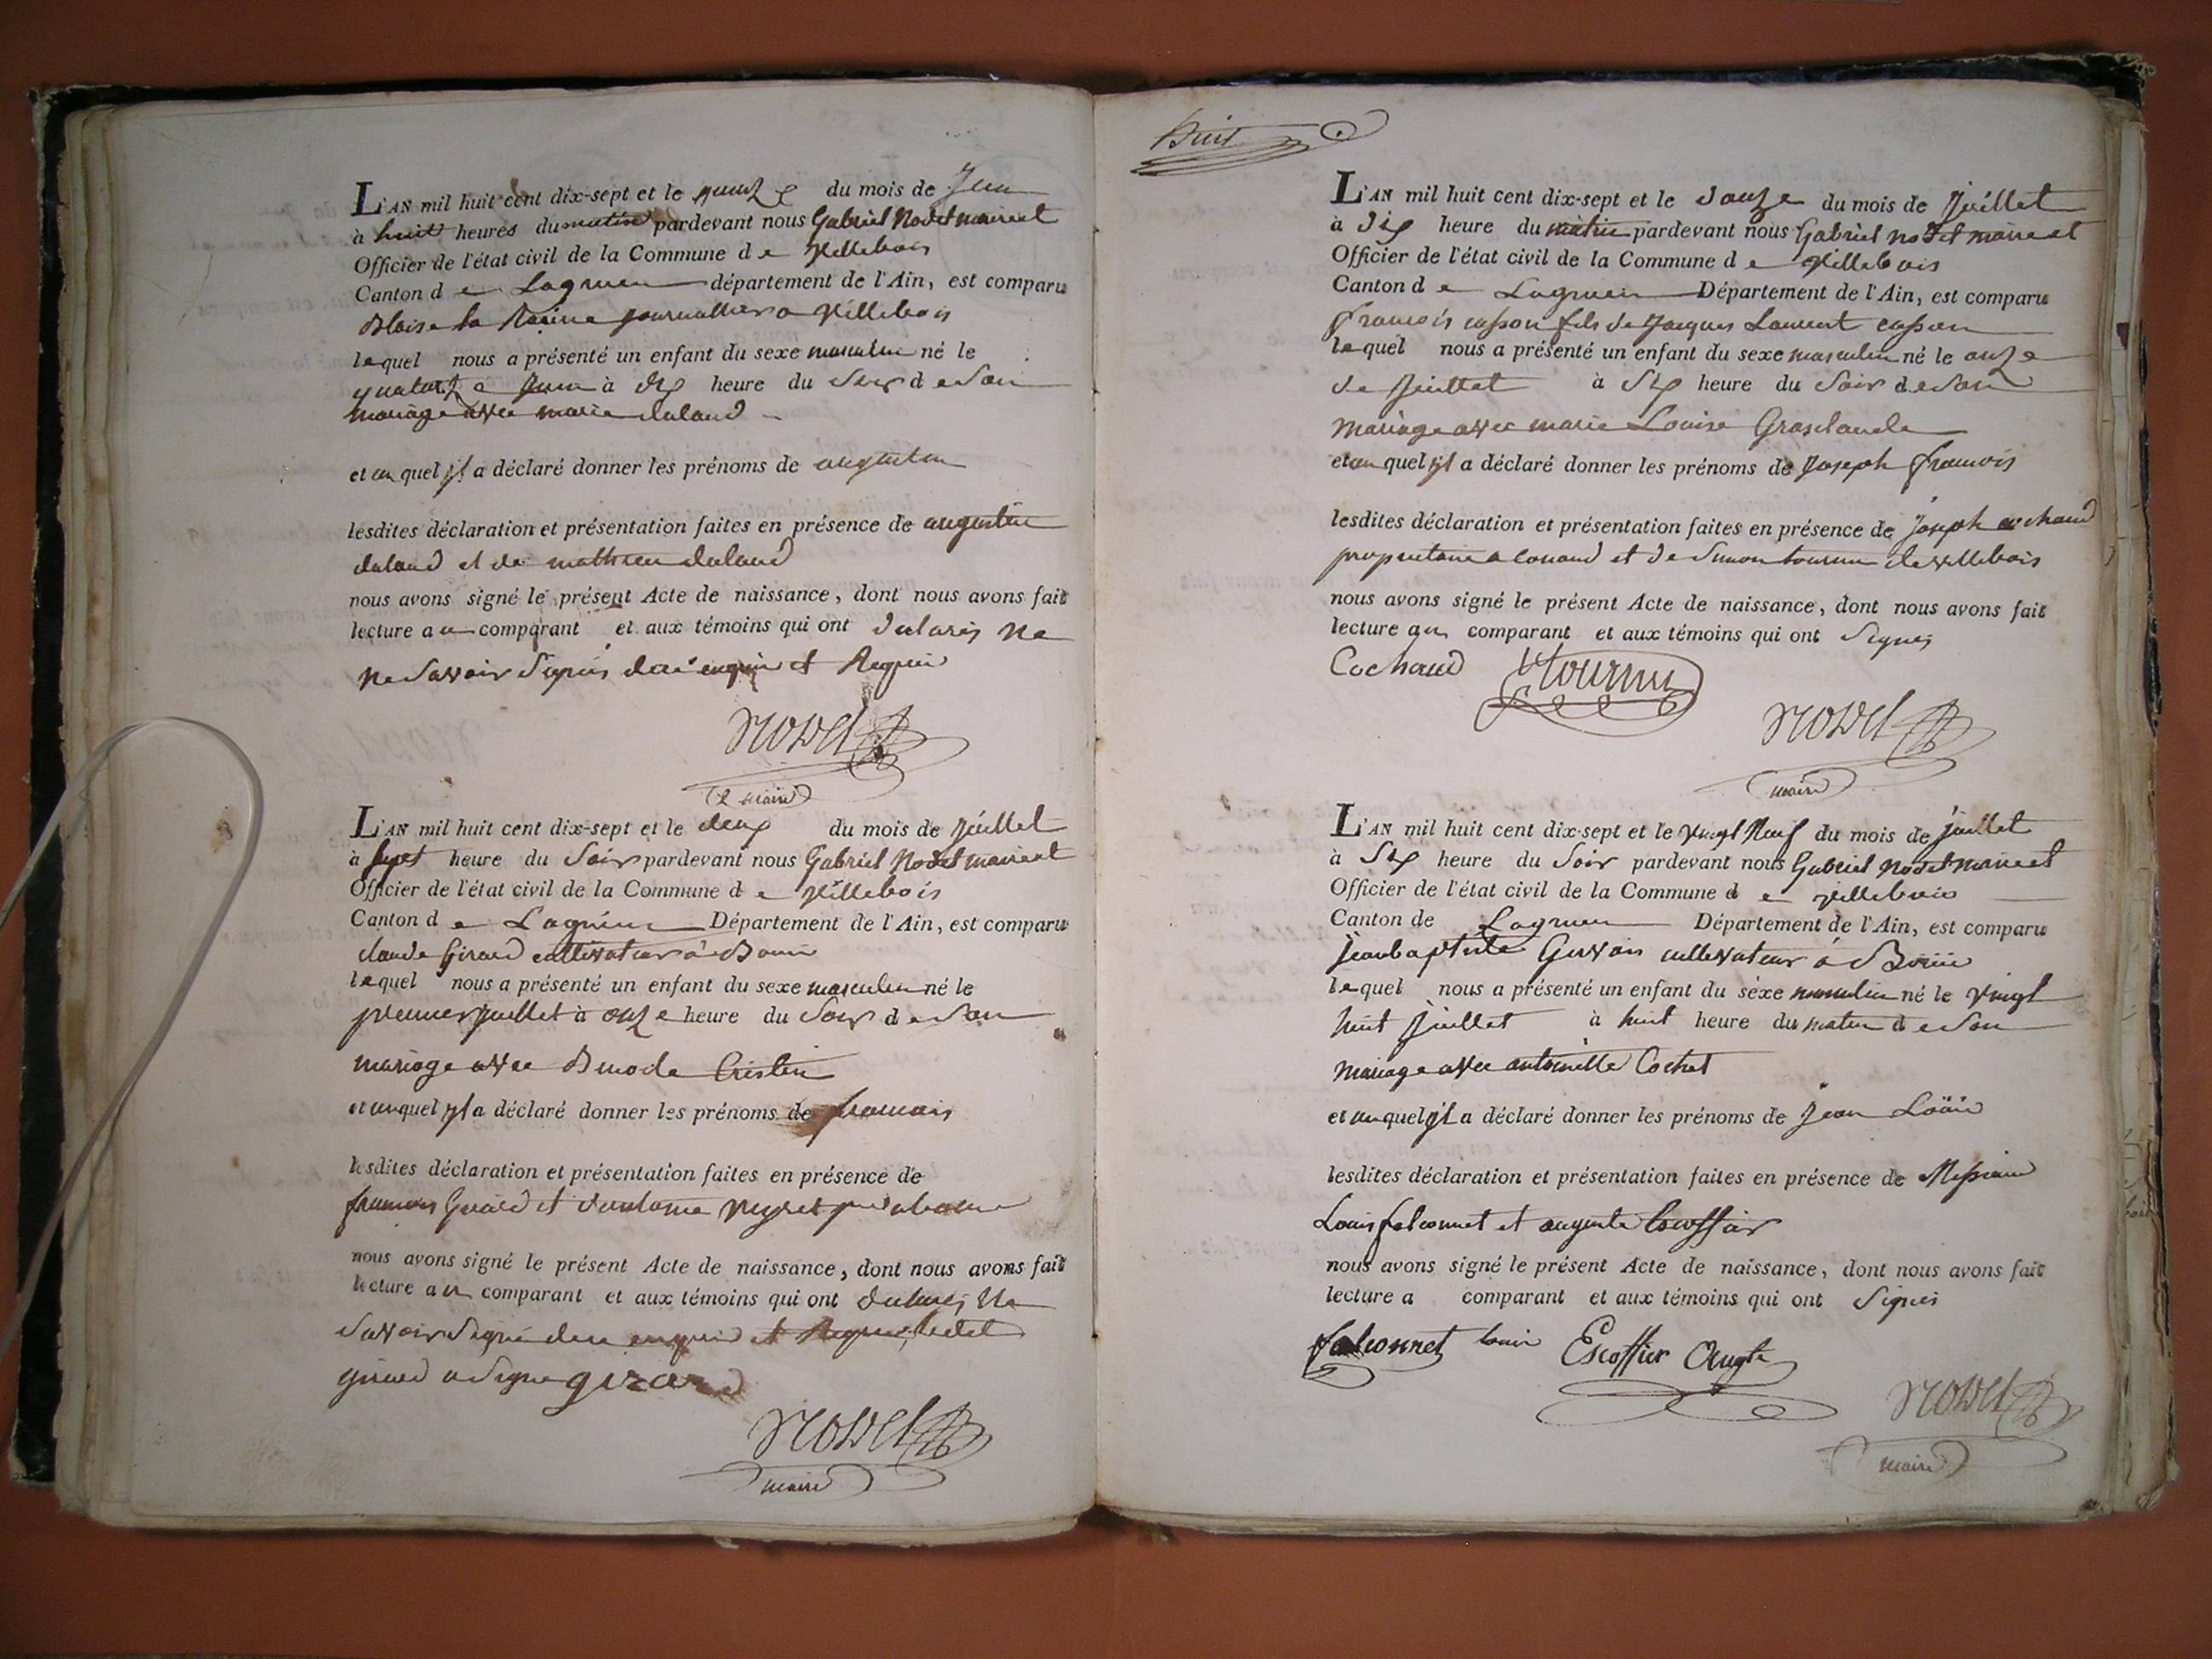 L'AN mil huit cent dix-sept et le quinze du mois de Juin
à huit heures du matin pardevant nous Gabriel Nodet maire et
Officier de l'état civil de la Commune de Villebois
Canton de Lagnieu département de l'Ain, est comparu
Blaise la Racine journallier a Villebois
lequel nous a présenté un enfant du sexe masculin né le
quatorze Juin à dix heure du Soir de Son
mariage avec marie
et auquel yl a déclaré donner les prénoms de augustin
lesdites déclaration et présentation faites en présence de augustin
et de mathieu
nous avons signé le présent Acte de naissance, dont nous avons fait
lecture au comparant et aux témoins qui ont declarés ne
ne Savoir Signés de ce enquis et Requis
Nodet
maire
L'AN mil huit cent dix-sept et le deux du mois de Juillet
à sept heure du Soir pardevant nous Gabriel Nodet maire et
Officier de l'état civil de la Commune de Villebois
Canton de Lagnieu Département de l'Ain, est comparu
claude Girard cultivateur à Bouis
lequel nous a présenté un enfant du sexe masculin né le
premier Juillet à onze heure du Soir de Son
mariage avec Cristin
et auquel yl a déclaré donner les prénoms de francois
lesdites déclaration et présentation faites en présence de
francois Girard et
nous avons signé le présent Acte de naissance, dont nous avons fait
lecture au comparant et aux témoins qui ont declarés Ne
Savoir Signé de ce enquis et Requis ledit
girard a Signé girard
Nodet
maire
huit
L'AN mil huit cent dix-sept et le douze du mois de Juillet
à dix heure du matin pardevant nous Gabriel nodet maire et
Officier de l'état civil de la Commune de Villebois
Canton de Lagnieu Département de l'Ain, est comparu
francois casson fils de Jacques Laurent casson
lequel nous a présenté un enfant du sexe masculin né le onze
de Juillet à Six heure du Soir de Son
mariage avec marie Louise Grosclaude
et auquel yl a déclaré donner les prénoms de Joseph francois
lesdites déclaration et présentation faites en présence de Joseph cochaud
propriétaire a et de Simon tournu de villebois
nous avons signé le présent Acte de naissance, dont nous avons fait
lecture au comparant et aux témoins qui ont Signés
Cochaud tournu
Nodet
maire
L'AN mil huit cent dix-sept et le vingt Neuf du mois de juillet
à Six heure du Soir pardevant nous Gabriel Nodet maire et
Officier de l'état civil de la Commune de villebois
Canton de Lagnieu Département de l'Ain, est comparu
jeanbaptiste Gervais cultivateur à Bouis
lequel nous a présenté un enfant du sexe masculin né le vingt
huit Juillet à huit heure du matin de Son
mariage avec antoinette Cochet
et auquel yl a déclaré donner les prénoms de Jean Loüis
lesdites déclaration et présentation faites en présence de Messieurs
Louis falconnet et auguste Escoffier
nous avons signé le présent Acte de naissance, dont nous avons fait
lecture a comparant et aux témoins qui ont Signés
falconnet louis Escoffier Augte
Nodet
maire